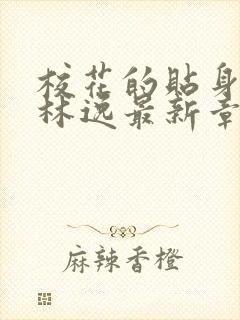 校花的贴身
林逸最新章
麻辣香橙